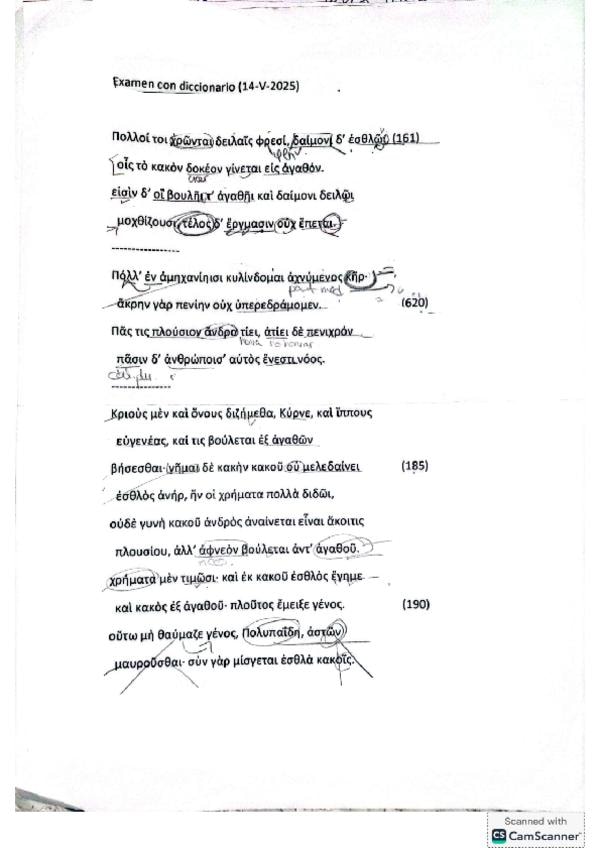 Examen con diccionario (14-V-2025)
Πολλοί τοι χρῶνται δειλαῖς φρεσί, δαίμονι δ' ἐσθλῶι (161)
οἷς τὸ κακὸν δοκέον γίνεται εἰς ἀγαθόν.
εἰσὶν δ' οἳ βουλῆι τ' ἀγαθῆι καὶ δαίμονι δειλῶι
μοχθίζουσι, τέλος δ' ἔργμασιν οὐχ ἕπεται.
---------------
Πόλλ' ἐν ἀμηχανίηισι κυλίνδομαι ἀχνύμενος κῆρ·
ἄκρην γὰρ πενίην οὐχ ὑπερεδράμομεν. (620)
Πᾶς τις πλούσιον ἄνδρα τίει, ἀτίει δὲ πενιχρόν
πᾶσιν δ' ἀνθρώποισ' αὐτὸς ἔνεστι νόος.
-------------
Κριοὺς μὲν καὶ ὄνους διζήμεθα, Κύρνε, καὶ ἵππους
εὐγενέας, καί τις βούλεται ἐξ ἀγαθῶν
βήσεσθαι· γῆμαι δὲ κακὴν κακοῦ οὐ μελεδαίνει (185)
ἐσθλὸς ἀνήρ, ἤν οἱ χρήματα πολλὰ διδῶι,
οὐδὲ γυνὴ κακοῦ ἀνδρὸς ἀναίνεται εἶναι ἄκοιτις
πλουσίου, ἀλλ' ἀφνεὸν βούλεται ἀντ' ἀγαθοῦ.
χρήματα μὲν τιμῶσι· καὶ ἐκ κακοῦ ἐσθλὸς ἔγημε
καὶ κακὸς ἐξ ἀγαθοῦ· πλοῦτος ἔμειξε γένος. (190)
οὕτω μὴ θαύμαζε γένος, Πολυπαΐδη, ἀστῶν
μαυροῦσθαι· σὺν γὰρ μίσγεται ἐσθλὰ κακοῖς.
Scanned with
CS CamScanner